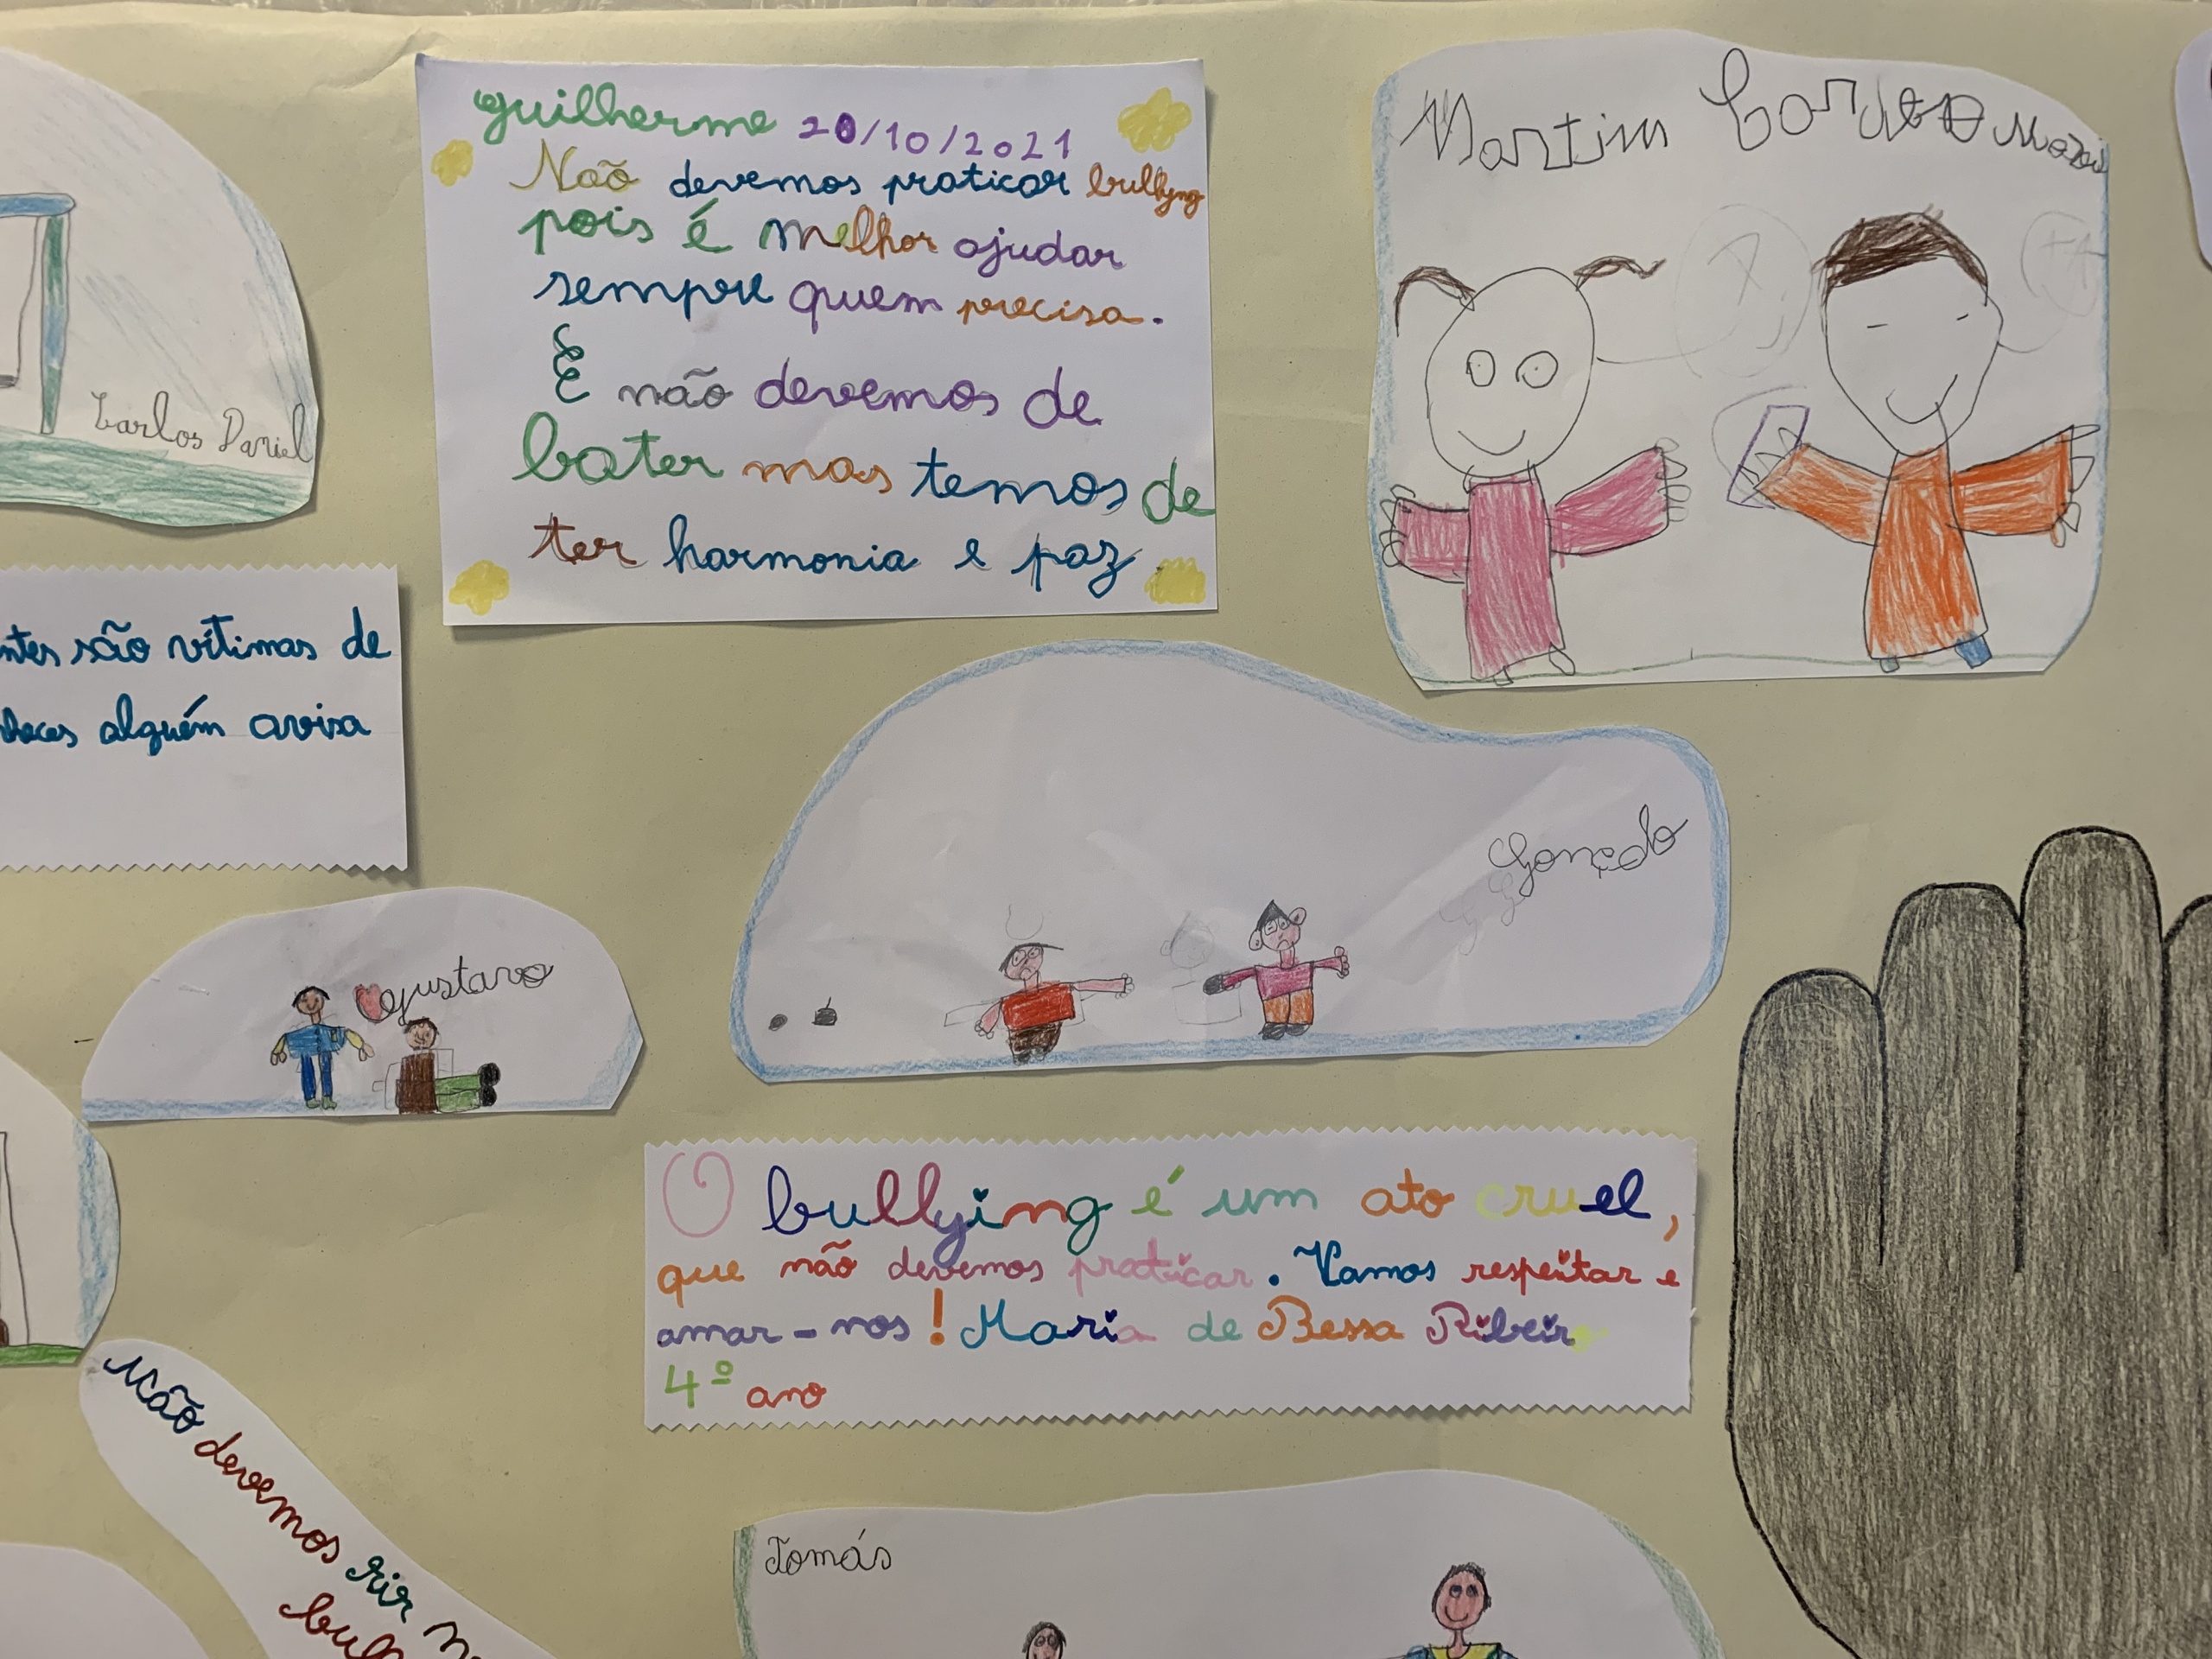 Guilherme 20/10/2021
Naõ devemos praticar bullyng
pois é melhor ajudar
sempre quem precisa.
E não devemos de
bater mas temos de
ter harmonia e paz
Martim
Carlos Daniel
são vítimas de
alguém avisa
Gonçalo
Gustavo
O bullying é um ato cruel,
que não devemos praticar. Vamos respeitar e
amar-nos! Maria de Bessa Ribeiro
4º ano
Não devemos rir
Tomás